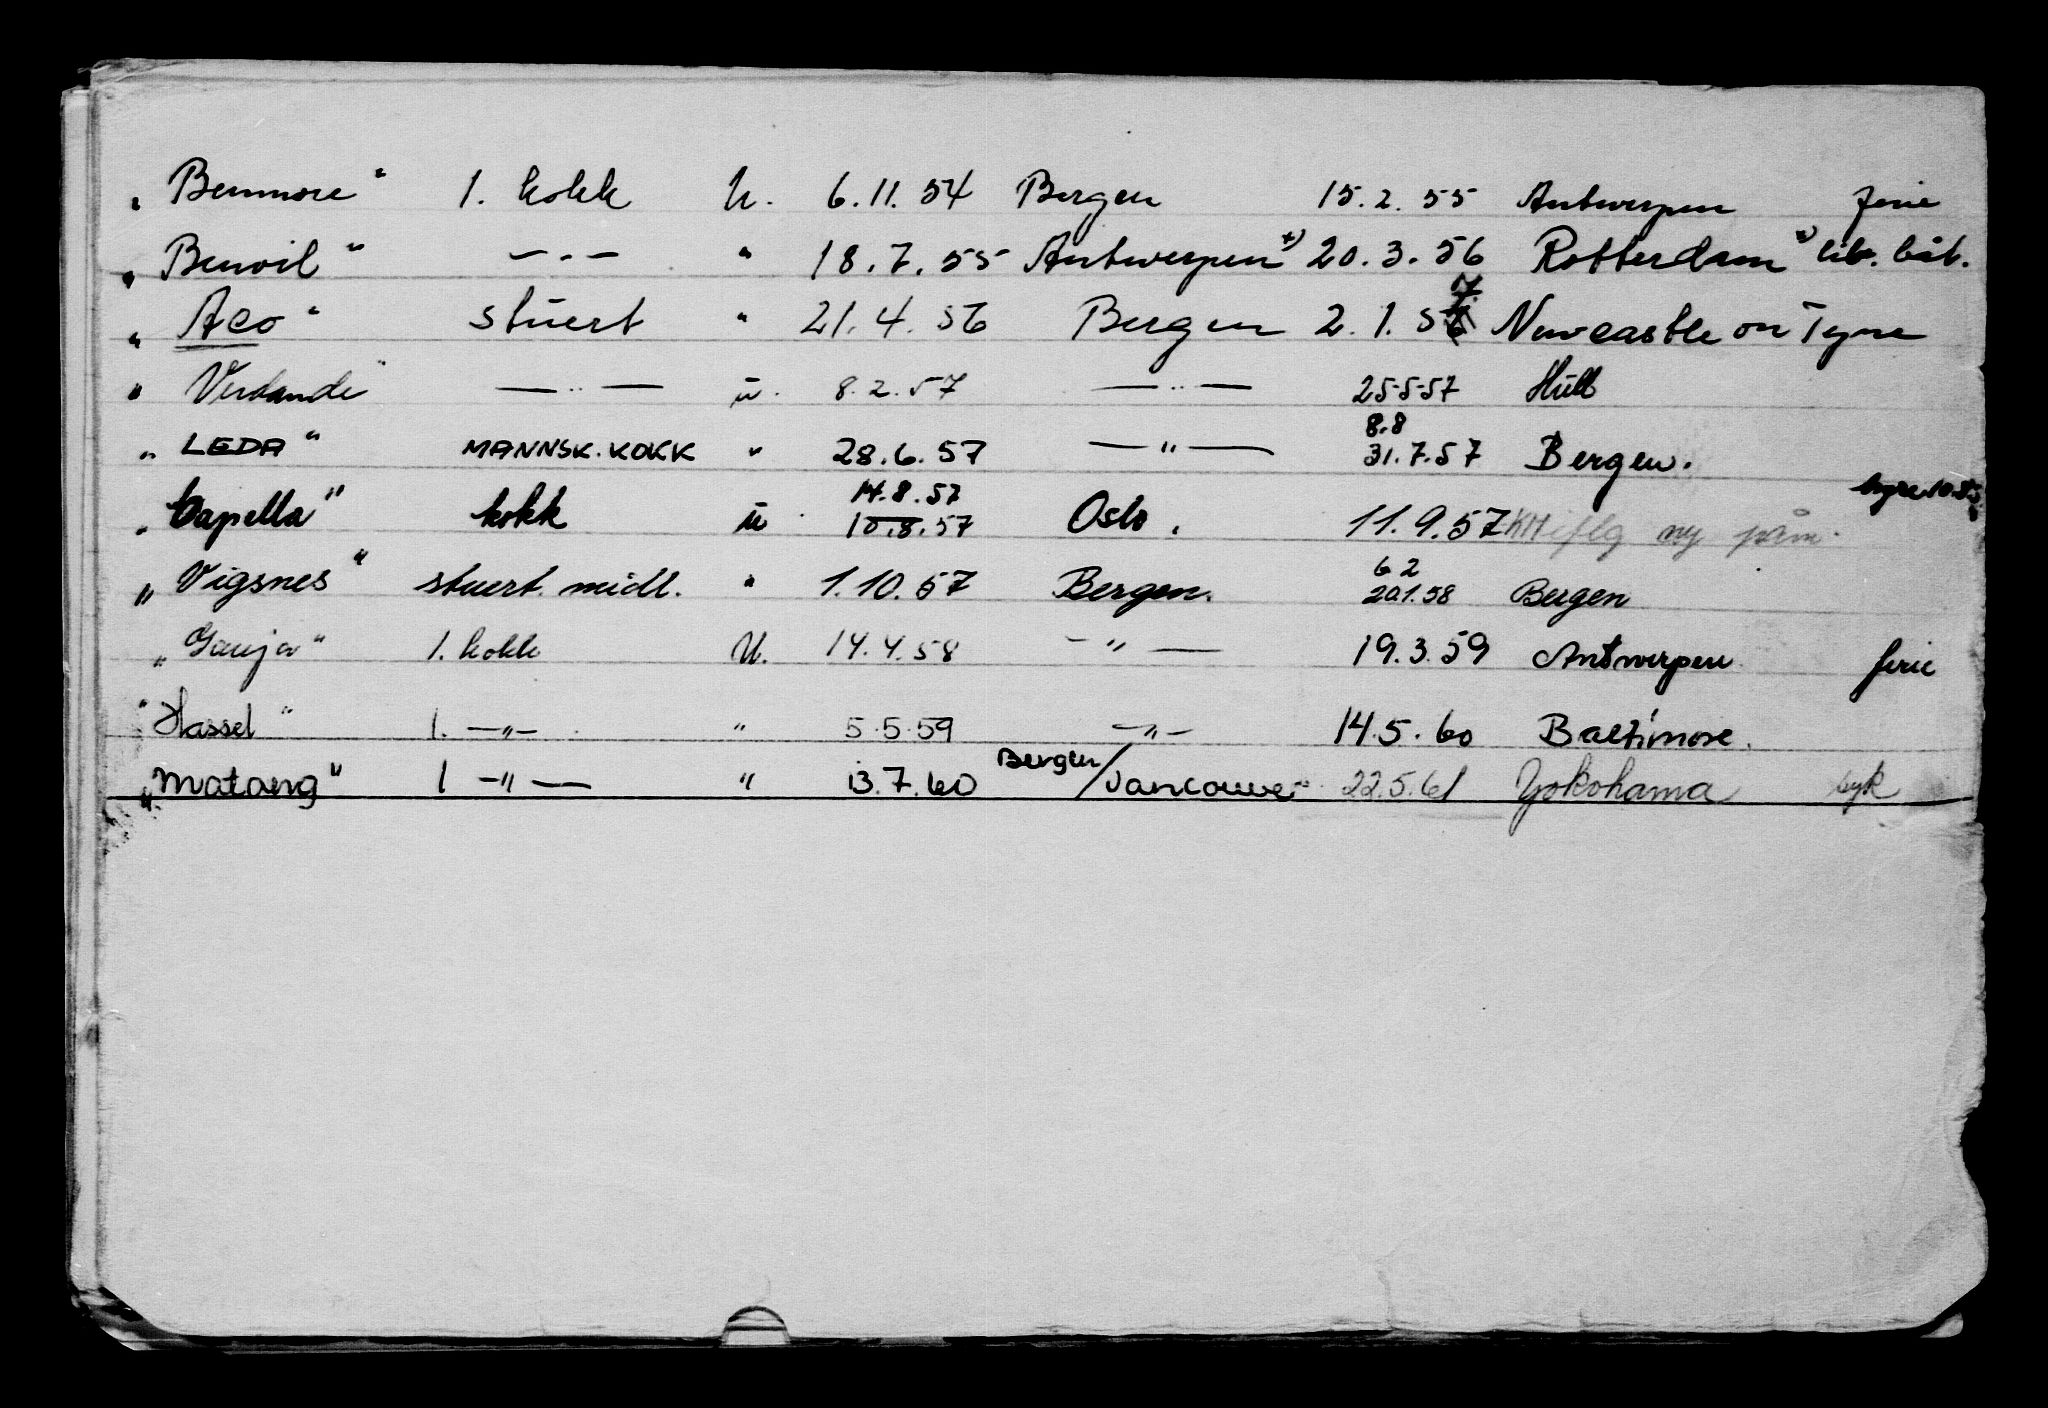 „ Benmore" 1. kokk U. 6.11.54 Bergen 15.2.55 Antwerpen ferie
„ Benvil" — " — " 18.7.55 Antwerpen +) 20.3.56 Rotterdam +) lib. båt.
„ Aco" stuert " 21.4.56 Bergen 2.1.57 Newcastle on Tyne
" Verdandi" — " — u. 8.2.57 — " — 25-5-57 Hull
8.8
„ LEDA" MANNSK. KOKK " 28.6.57 — " — 31.7.57 Bergen.
14.8.57
„ Capella" kokk u 10.8.57 Oslo. 11.9.57 iflg ny påm.
6 2
„ Vigsnes" stuert midl. " 1.10.57 Bergen. 20.1.58 Bergen
„ Ganja" 1. kokk U. 14.4.58 — " — 19.3.59 Antwerpen ferie
" Hassel" 1. — " — " 5.5.59 — " — 14.5.60 Baltimore.
„ Mataeng" 1 — " — " 13.7.60 Bergen/Vancouver 22.5.61 Yokohama syk